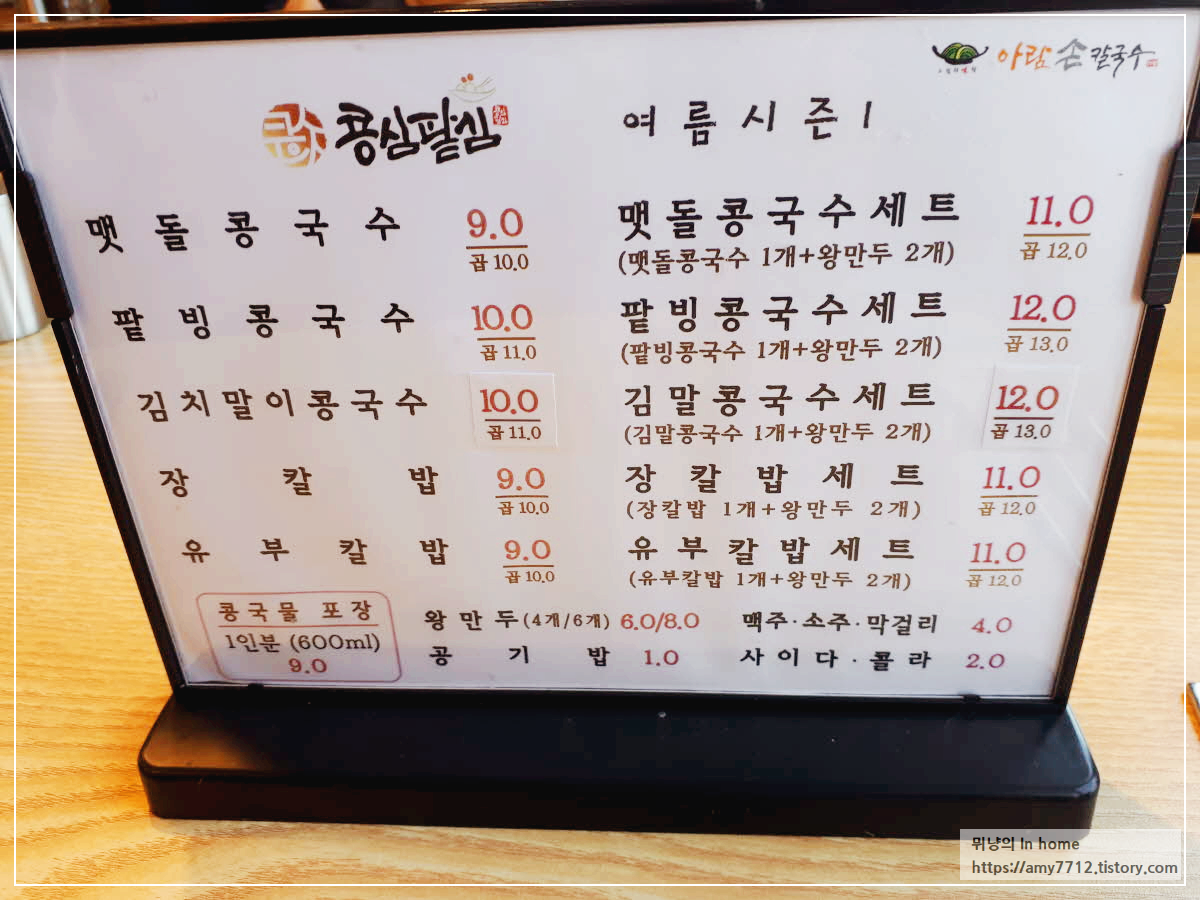 아람 손칼국수
콩심팥심
여름시즌1
맷돌콩국수 9.0
곱 10.0
맷돌콩국수세트 11.0
(맷돌콩국수 1개+왕만두 2개) 곱 12.0
팥빙콩국수 10.0
곱 11.0
팥빙콩국수세트 12.0
(팥빙콩국수 1개+왕만두 2개) 곱 13.0
김치말이콩국수 10.0
곱 11.0
김말콩국수세트 12.0
(김말콩국수 1개+왕만두 2개) 곱 13.0
장칼밥 9.0
곱 10.0
장칼밥세트 11.0
(장칼밥 1개+왕만두 2개) 곱 12.0
유부칼밥 9.0
곱 10.0
유부칼밥세트 11.0
(유부칼밥 1개+왕만두 2개) 곱 12.0
콩국물 포장
1인분 (600ml)
9.0
왕만두(4개/6개) 6.0/8.0
맥주·소주·막걸리 4.0
공기밥 1.0
사이다·콜라 2.0
뮈냥의 In home
https://amy7712.tistory.com